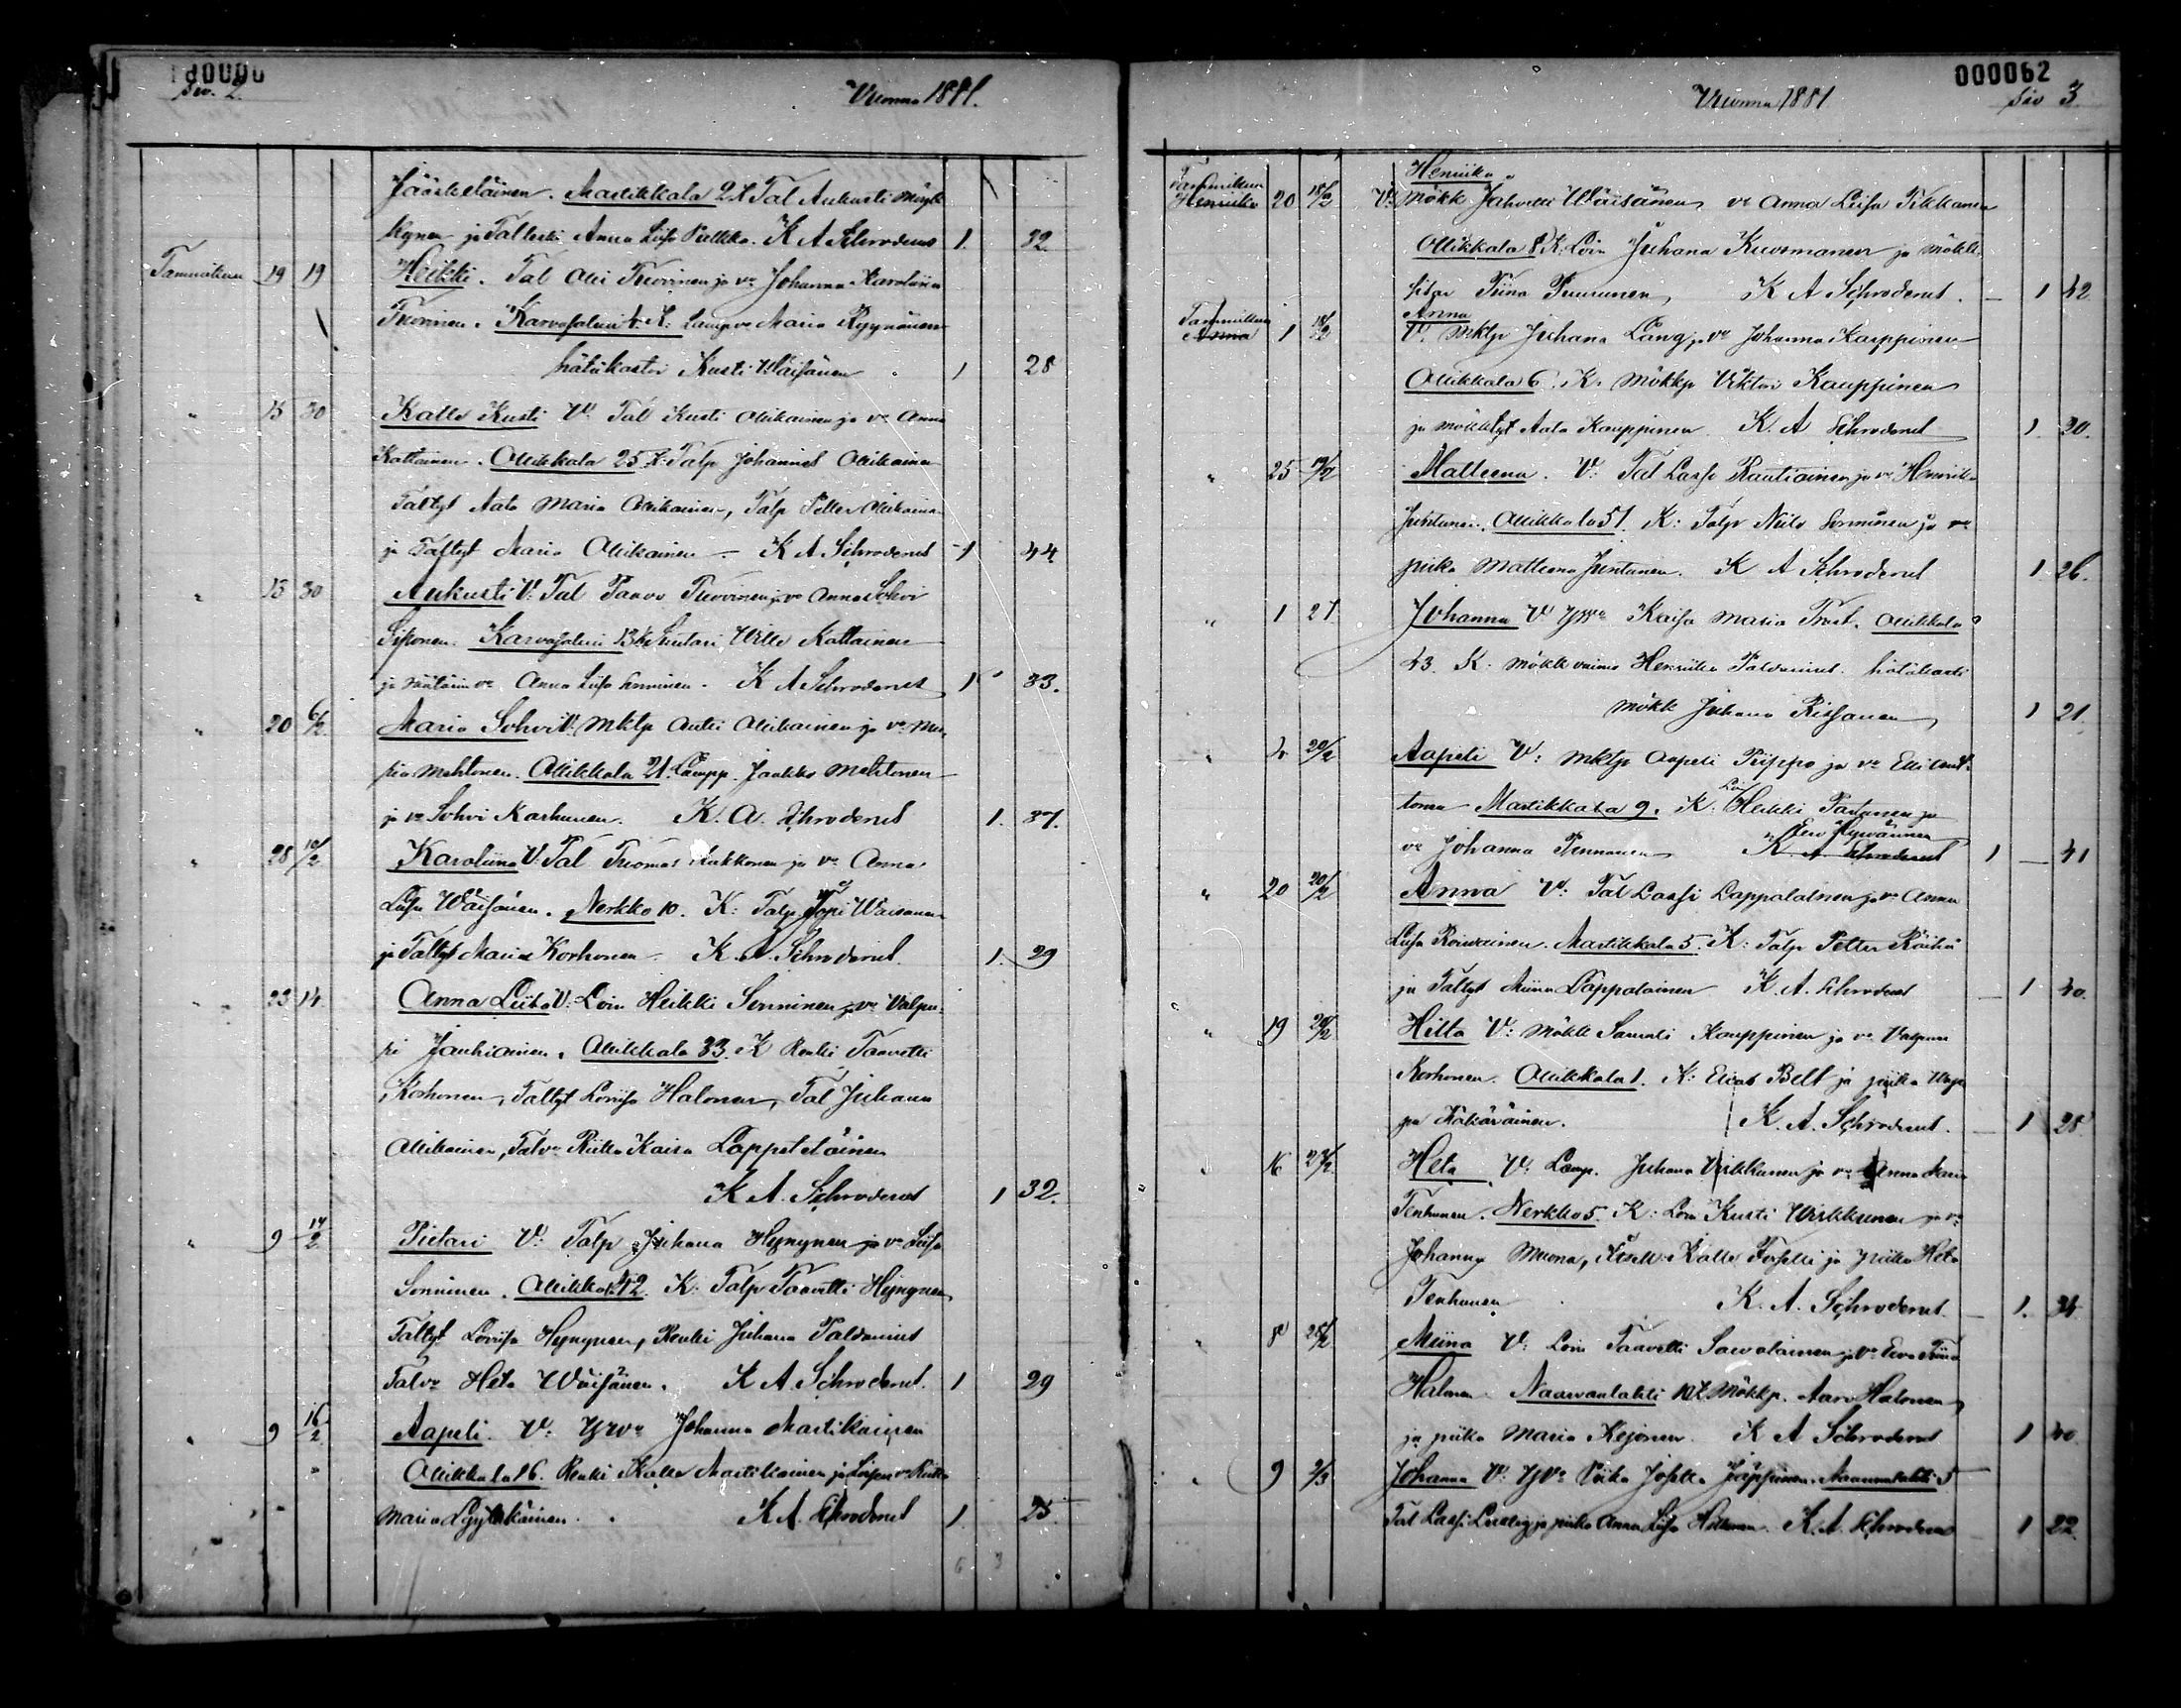 000062
Siv. 2.
Vuonna 1881.
Jääskeläinen. Martikkala 2 K Tal Aukusti
ja Talleski Anna Liisa Pulkka. K A Schroderus 1. 32
Tammikuu 19 19 Heikki. Tal Olli Tuovinen ja vo Johanna Karoliina
Tuovinen. Karvasalmi K: Lamp vo Maria Ryynänen
hätäkastoi Kusti Wäisänen 1 28
" 15 30 Kalle Kusti V: Tal Kusti Ollikainen ja vo Anna
Kattainen. Ollikkala 25 K: Talp Johannes Ollikainen
Taltyt Aata Maria Ollikainen, Talp Petter Ollikainen
ja Taltyt Maria Ollikainen – K A Schroderus 1 44
" 13 30 Aukusti V: Tal Paavo Tuovinen ja vo Anna Sohvi
Siponen. Karvasalmi 13 K Suutari Wille Kattainen
ja vo Anna Liisa Sonninen. K A Schroderus 1 33.
" 20 6/2 Maria Sohvi V: Mktp Antti Ollikainen ja vo Ma-
ria Mehtonen. Ollikkala 21. Lampp. Jaakko Mehtonen
ja vo Sohvi Karhunen. K. A. Schroderus 1. 37.
" 28 10/2 Karoliina V: Tal Tuomas Kukkonen ja vo Anna
Liisa Wäisänen. Nerkko 10. K: Talp Topi Wäisänen
ja Taltyt Maria Korhonen. K. A. Schroderus. 1. 29
" 23 14 Anna Liisa V: Loin Heikki Sonninen ja vo Valpu-
ri Jauhiainen. Ollikkala 33. K Renki Taavetti
Korhonen, Taltyt Loviisa Halonen, Tal Juhana
Ollikainen, Talvo Riitta Kaisa Lappeteläinen
K A. Schroderus 1 32.
" 9 14/2 Pietari V: Talp Juhana Hynynen ja vo Liisa
Sonninen. Ollikkala 12. K: Talp Taavetti Hynynen
Taltyt Loviisa Hynynen, Renki Juhana Paldanius
Talvo Heta Wäisänen. K A Schroderus. 1 29
" 9 16/2 Aapeli. V: Yrvo Johanna Martikainen
Ollikkala 16. Renki Kalle Martikainen ja vo Riitta
Maria Lyytikäinen. K A Schroderus 1. 25
000062
Vuonna 1881
Siv 3.
Henriika
Tammikuu Henriika 20 18/2 V: Mökk Jahvetti Wäisänen vo Anna Liisa Tikkanen
Ollikkala 8 K: Loin Juhana Kuosmanen ja mökk.
Tiina Puurunen K A Schroderus. 1 42
Anna
Tammikuu Anna 1 18/2 V. Mktp Juhana Lång ja vo Johanna Kauppinen
Ollikkala 6. K. Mökkp Viktor Kauppinen
ja mökktyt Aata Kauppinen K. A Schroderus 1. 30.
" 25 19/2 Matleena. V: Tal Lassi Rautiainen ja vo Henriika
Juntunen. Ollikkala 51. K: Talp Niilo Sonninen ja vo
piika Matleena Juntunen. K A Schroderus 1 26.
" 1 27 Johanna V Yrvo Kaisa Maria Trast. Ollikkala
43. K. Mökk vaimo Henriika Paldanius. hätäkasti
mökk Juhana Rissanen 1 21
" 4 20/2 Aapeli V: Mktp Aapeli Piippo ja vo
Martikkala 9. K: Loi Heikki Partanen ja
Eero Hyvärinen
vo Johanna Pennanen K. A Schroderus 1 41
" 20 20/2 Anna V: Tal Lassi Lappalainen ja vo Anna
Liisa Roivainen. Martikkala 5. K: Talp Petter Räihä
ja Taltyt Miina Lappalainen K. A. Schroderus 1 40.
" 19 20/2 Hilta V: Mökk Samuli Kauppinen ja vo Valpuri
Korhonen. Ollikkala 1. K: Elias Belt ja piika
K. A. Schroderus. 1 28
" 16 27/2 Heta V: Lamp. Juhana Wirkkunen ja vo Anna Maria
Tenhunen. Nerkko 5. K: Loin Kusti Wirkkunen ja vo
Johanna Muona, Kalle Forsell ja piika Heta
Tenhunen K. A. Schroderus. 1. 34
" 8 28/2 Miina V: Loin Taavetti Sawolainen ja vo Eeva Tiina
Halonen. Naarvanlahti 10 K Mökkp. Aaro Halonen
ja piika Maria Kejonen. K A Schroderus 1 40
" 9 2/3 Johanna V: Yrvo Piika Johanna Jäppinen. Naarvanlahti 5
Tal Lassi Ludvig ja piika Anna Liisa K. A. Schroderus 1 22.